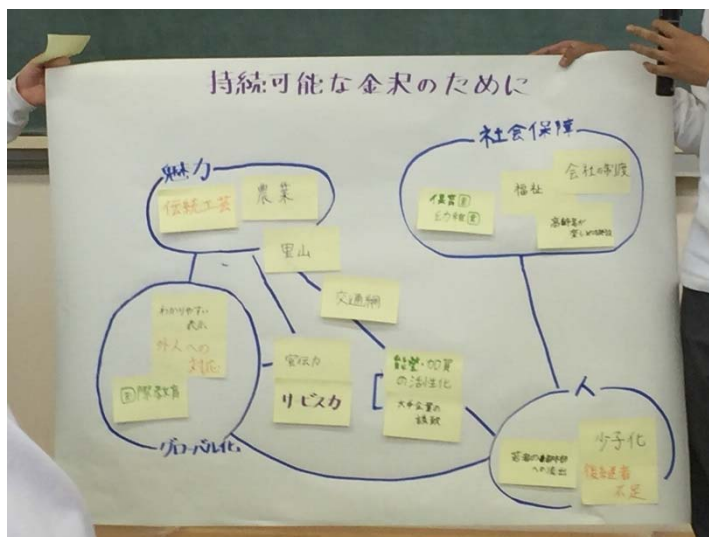 持続可能な金沢のために
魅力
伝統工芸
農業
里山
交通網
社会保障
福祉
会社の制度
高齢者が
わかりやすい
表示
外人への
対応
国際教育
グローバル化
宣伝力
リビスカ
能登・加賀
の活性化
大手企業の
誘致
人
少子化
若者の都市部
への流出
後継者
不足